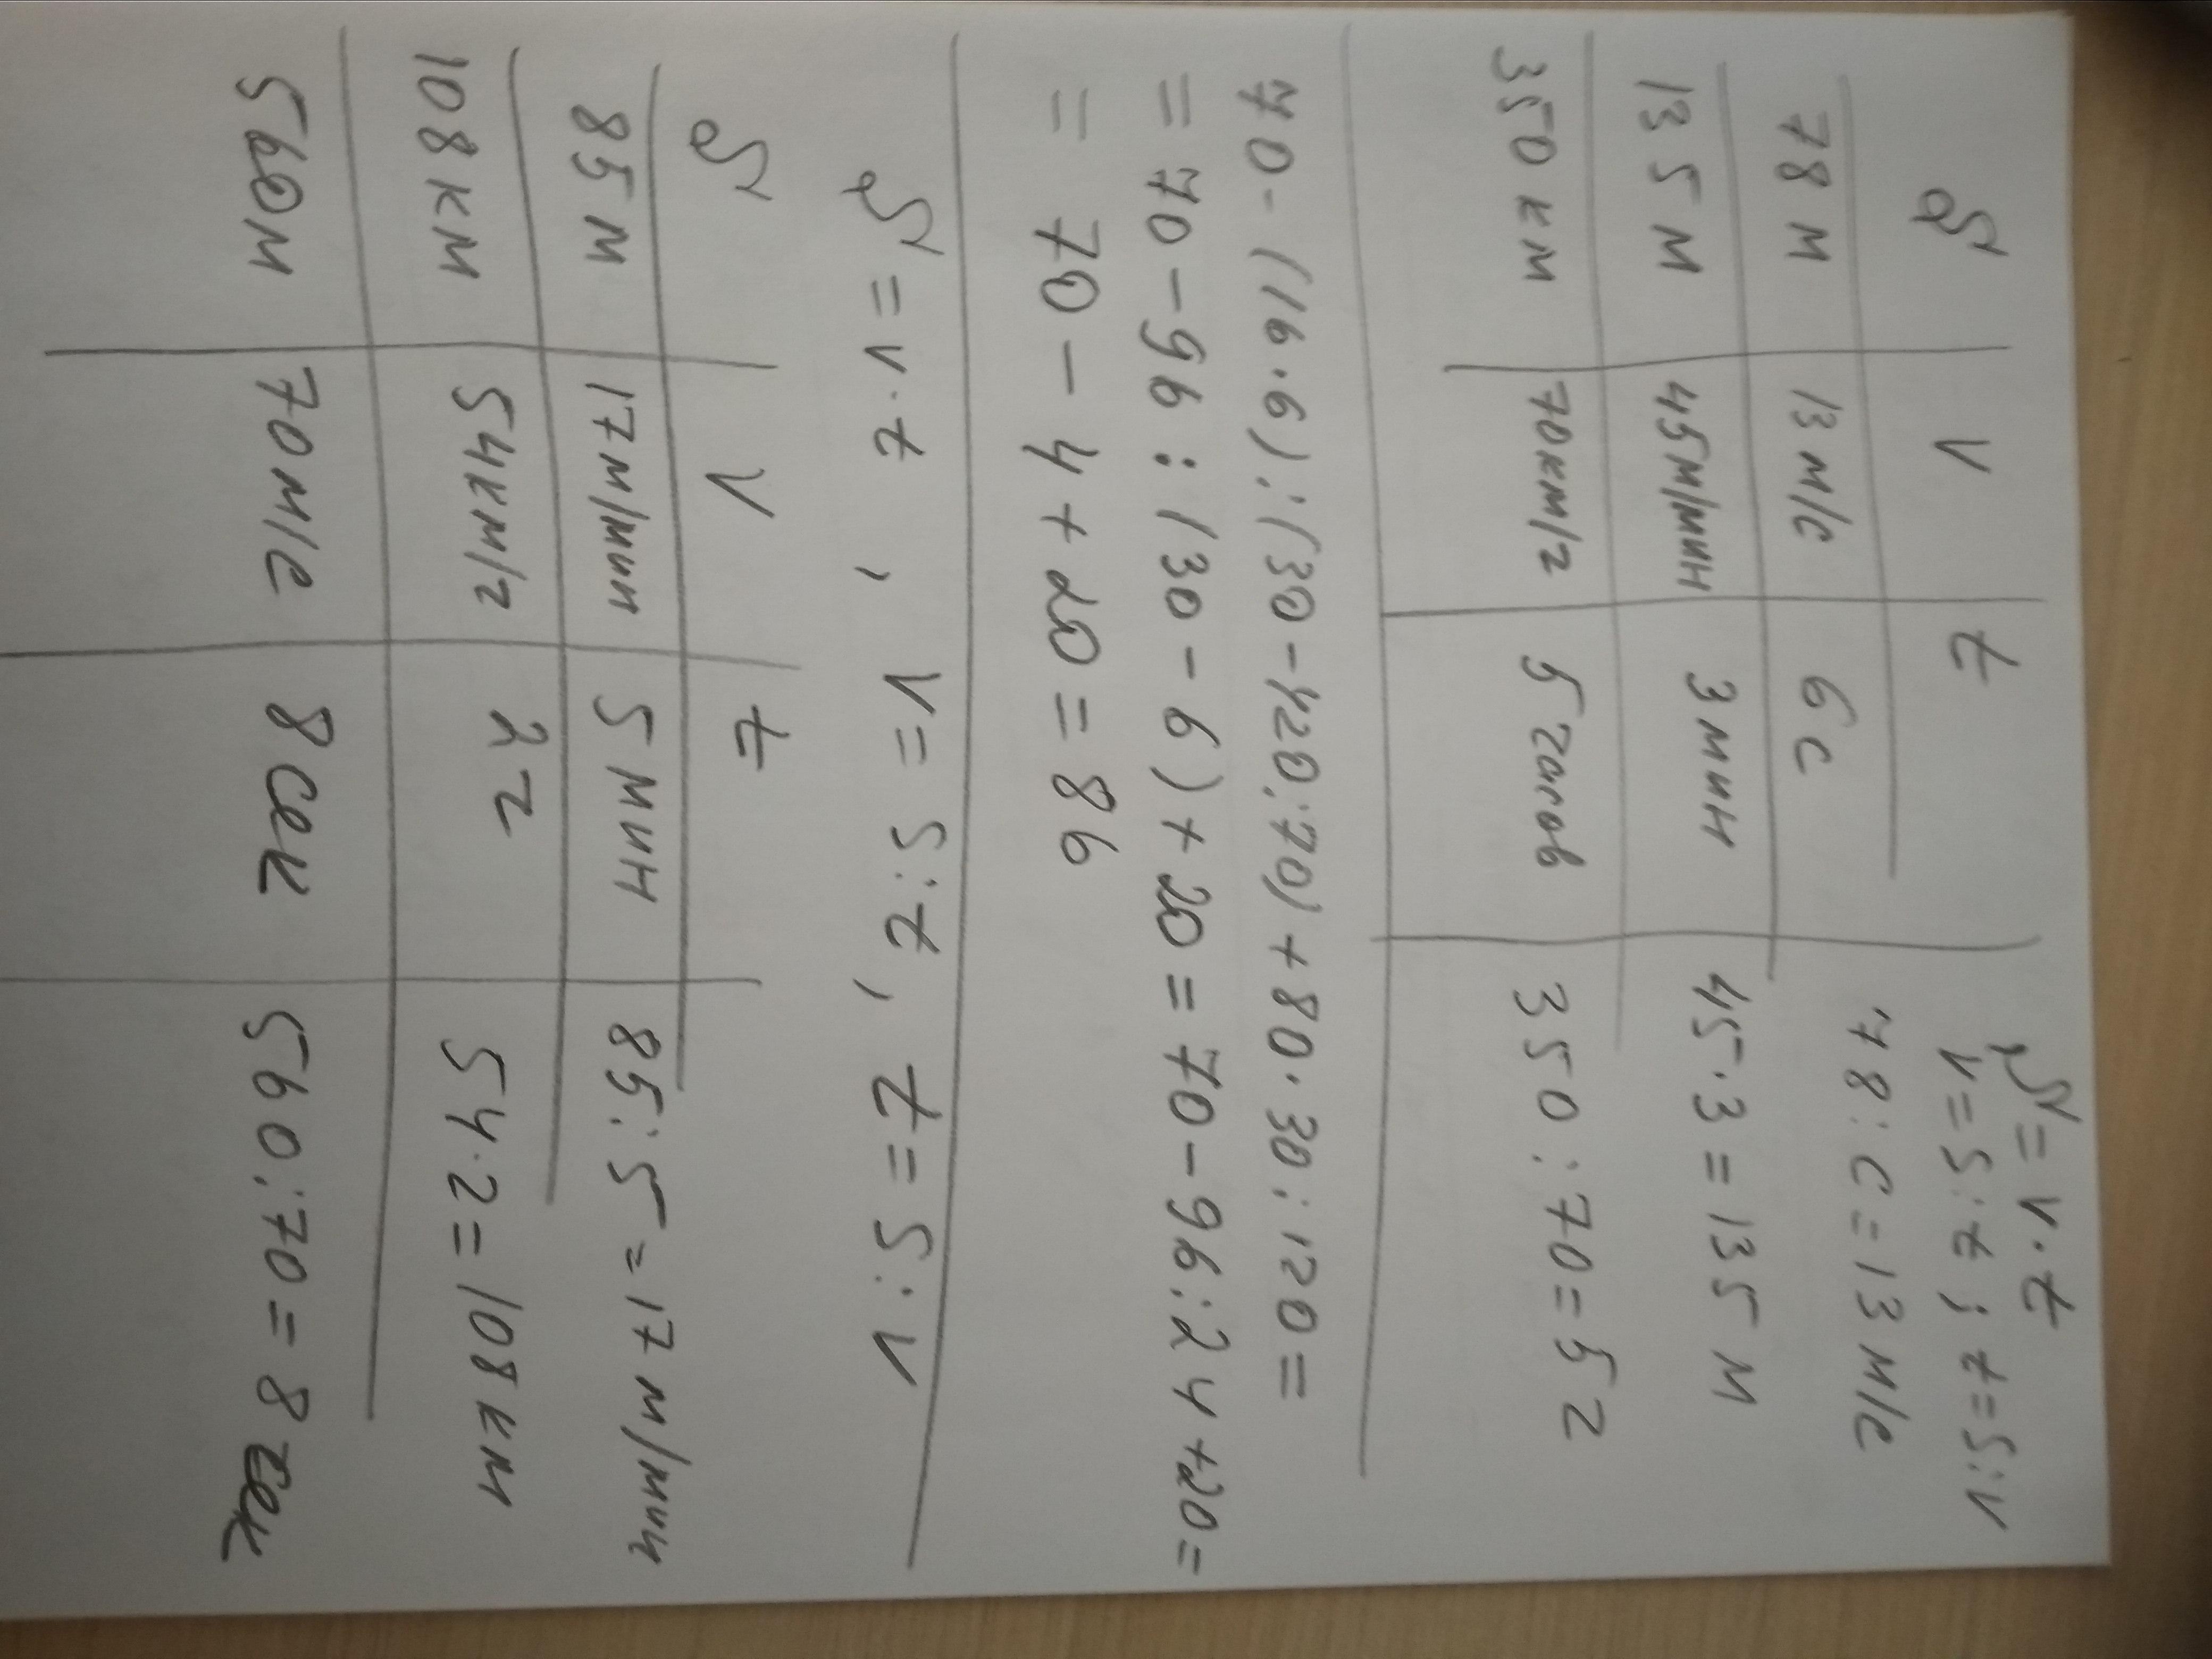 S = v · t
S v t v = S : t ; t = S : v
78 м 13 м/с 6 с 78 : С = 13 м/с
135 м 45 м/мин 3 мин 45 · 3 = 135 м
350 км 70 км/г 5 часов 350 : 70 = 5 г
70 - (16 · 6) : (30 - 420 : 70) + 80 · 30 : 120 =
= 70 - 96 : (30 - 6) + 20 = 70 - 96 : 24 + 20 =
= 70 - 4 + 20 = 86
S = v · t , v = S : t , t = S : v
S v t
85 м 17 м/мин 5 мин 85 : 5 = 17 м/мин
108 км 54 км/г 2 г 54 · 2 = 108 км
560 м 70 м/с 8 сек 560 : 70 = 8 сек